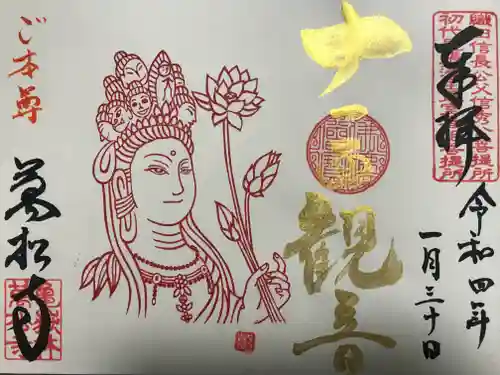 奉拝
織田信長公父信秀 菩提所
初代
令和四年
一月三十日
十一面
観音
ご本尊
萬松寺
亀嶽林
萬松寺